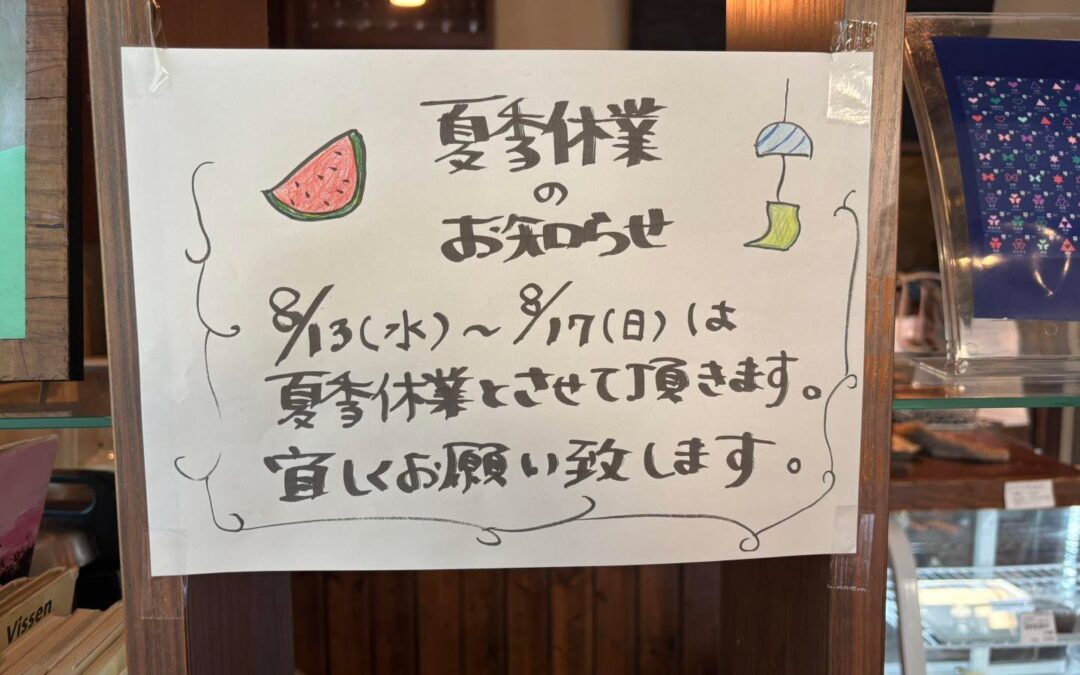 夏季休業
の
お知らせ
8/13(水)～8/17(日)は
夏季休業とさせて頂きます。
宜しくお願い致します。
Vissen